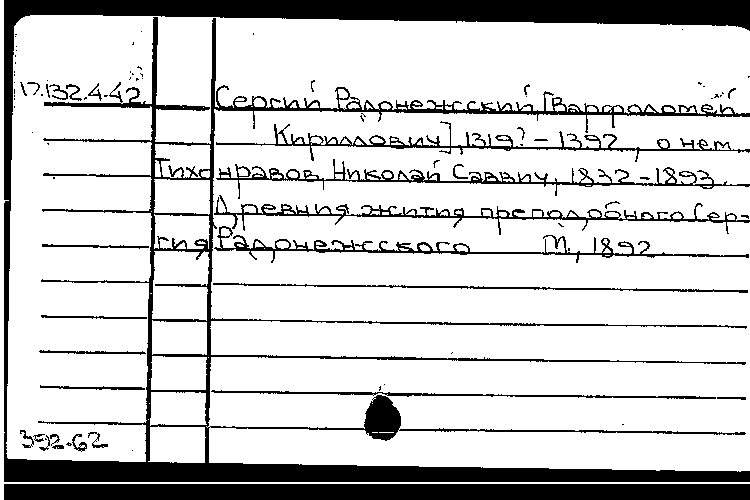 17.132.4.42 Сергий Радонежский, [Варфоломей
Кириллович], 1319? – 1392, о нем
Тихонравов, Николай Саввич, 1832–1893.
Древния жития преподобного Сер-
гия Радонежского М., 1892.
392.62